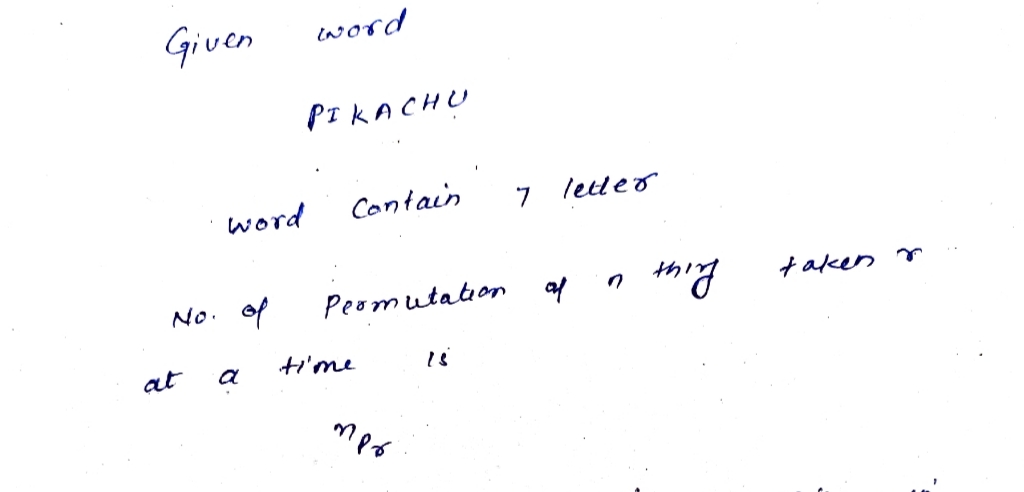 Given word
PIKACHU
word Contain 7 letter
No. of Permutation of n thing taken r
at a time is
nPr